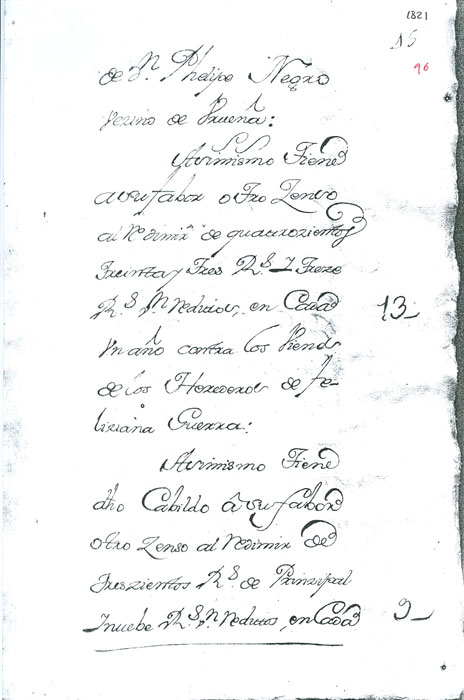 1821
15
96
de Dn. Phelipe Negro
vezino de Brueña:
Assimismo Tiene
a su fabor otro Zenso
al Redimir de quatrozientos
treinta y tres Rs. I treze
Rs. Vn. Reditos, en Cada 13
Vn año contra los Vienes
de los Herederos de fe-
liziana Guerra:
Assimismo Tiene
dho Cabildo â su fabor
otro Zenso al Redimir de
treszientos Rs. de Prinzipal
I nuebe Rs. Vn. Reditos, en Cada 9